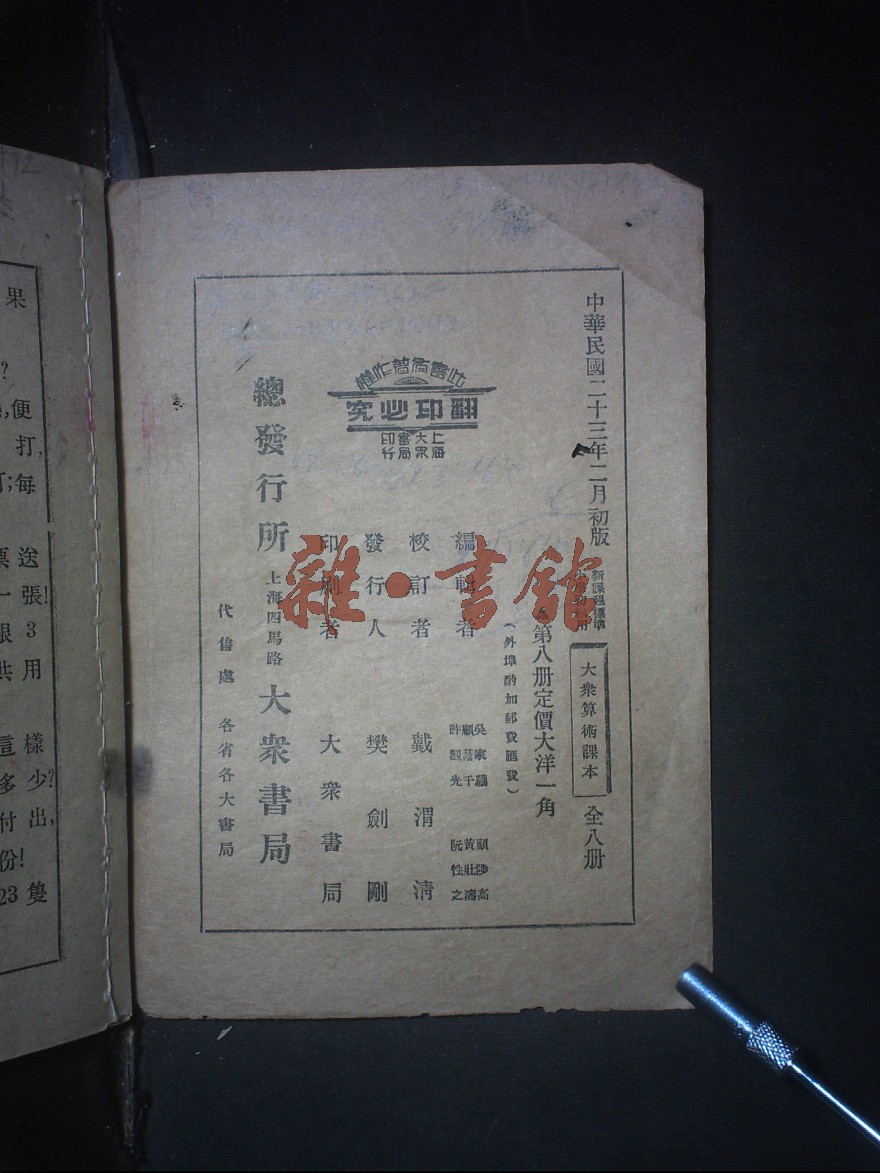 中華民國二十三年二月初版
新課程標準
大衆算術課本
全八册
第八册定價大洋一角
(外埠酌加郵費匯費)
編輯者
顧
許觀光
黃壯濤
阮性之
校訂者 戴渭清
發行人 樊劍剛
印刷者 大衆書局
此書有著作權
翻印必究
上海
大衆
書局
印行
總發行所 上海四馬路 大衆書局
代售處 各省各大書局
雜·書館
果
?
,便
打,
;每
票送
一張!
根3
共用
這樣
多少?
付出,
份!
23隻